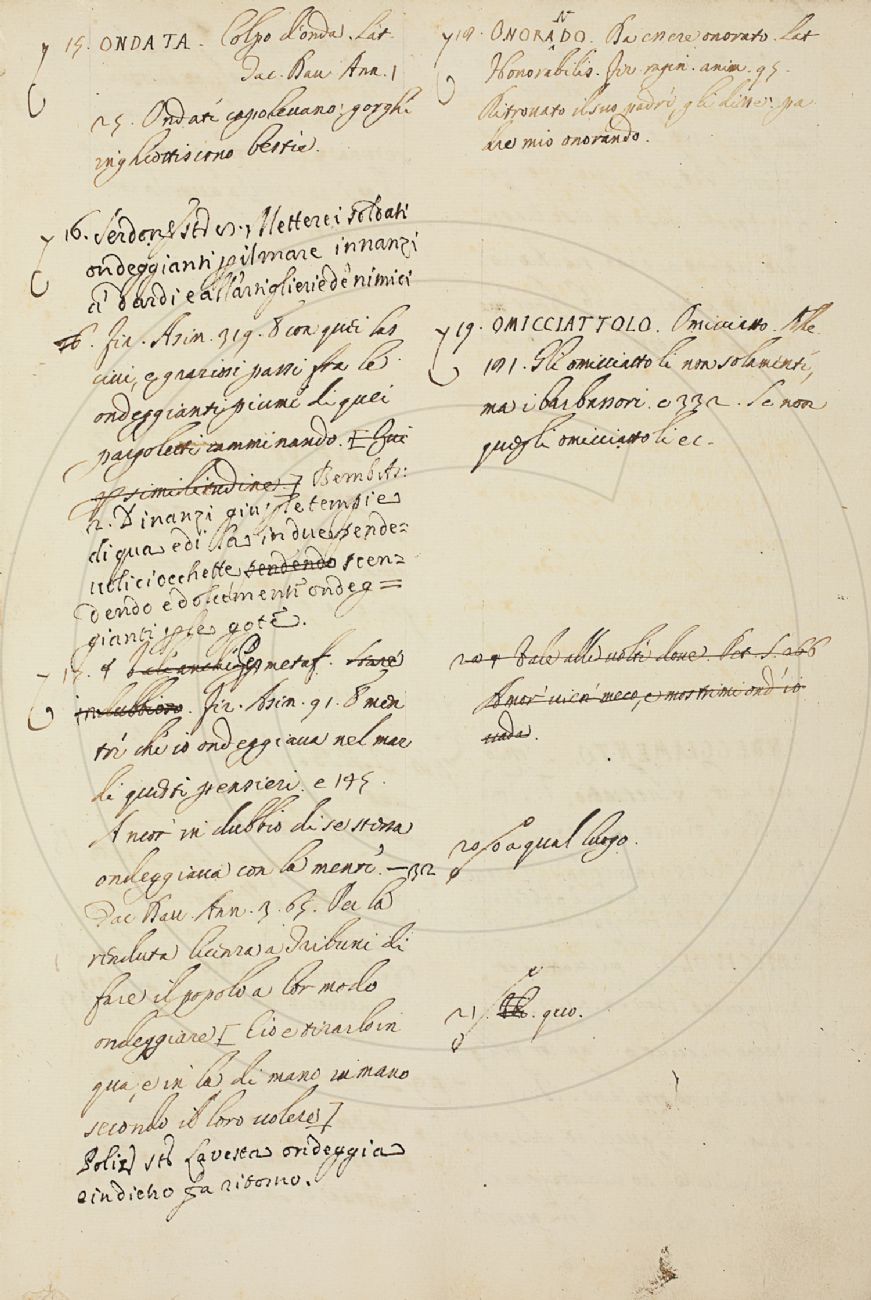 15. ONDATA. Colpo d'onda. Lat.
Dav. Rau. Ann. 1
25. Ondate capolevano: gorghi
inghiottiscono bestie.
16. Serdon. Stor. Mettere i soldati
ondeggianti p il mare innanzi
a' dardi e all'artiglierie de' nimici
16. Fir. Asin. 319. E con quei las
civi, e graziosi passi fra le
ondeggianti piume di quei
paggoletti camminando. [Qui
p similitudine.] Bemb. As:
2. Dinanzi giu p le tempie
di qua e di là in due pende=
voli ciocchette sendendo scen=
dendo e dolcemente ondeg=
gianti p le gote.
17. ¶ Vale anche P metaf. Stare
in dubbioso. Fir. Asin. 91. E men
tre che io ondeggiava nel mar
di questi pensieri. e 145.
Ancor in dubbio di se stessa
ondeggiava con la mente. — 32
Dav. Rau. Ann. 3. 65. Per la
renduta licenza a Tribuni di
fare il popolo a lor modo
ondeggiare [Cio e tirarlo in
qua, e in là di mano in mano
secondo il loro volere]
Poliz. St. La vesta ondeggia
e indietro fa ritorno.
18. ONORANDO. Da essere onorato. Lat.
Honorabilis. Fir. anim. 95.
Ritrovato il suo padre, gli disse: pa
dre mio onorando.
19. OMICCIATTOLO. Omiciatto. Alle.
191. Gli omicciattoli non solamente,
ma i barbassori. e 332. Se non
quegli omicciattoli ec.
20 ¶ Vale alle volte dove. Pet. S. 266
Amor vien meco, e mostrimi ond' io
vada.
20 o a qual luogo.
21 quo.